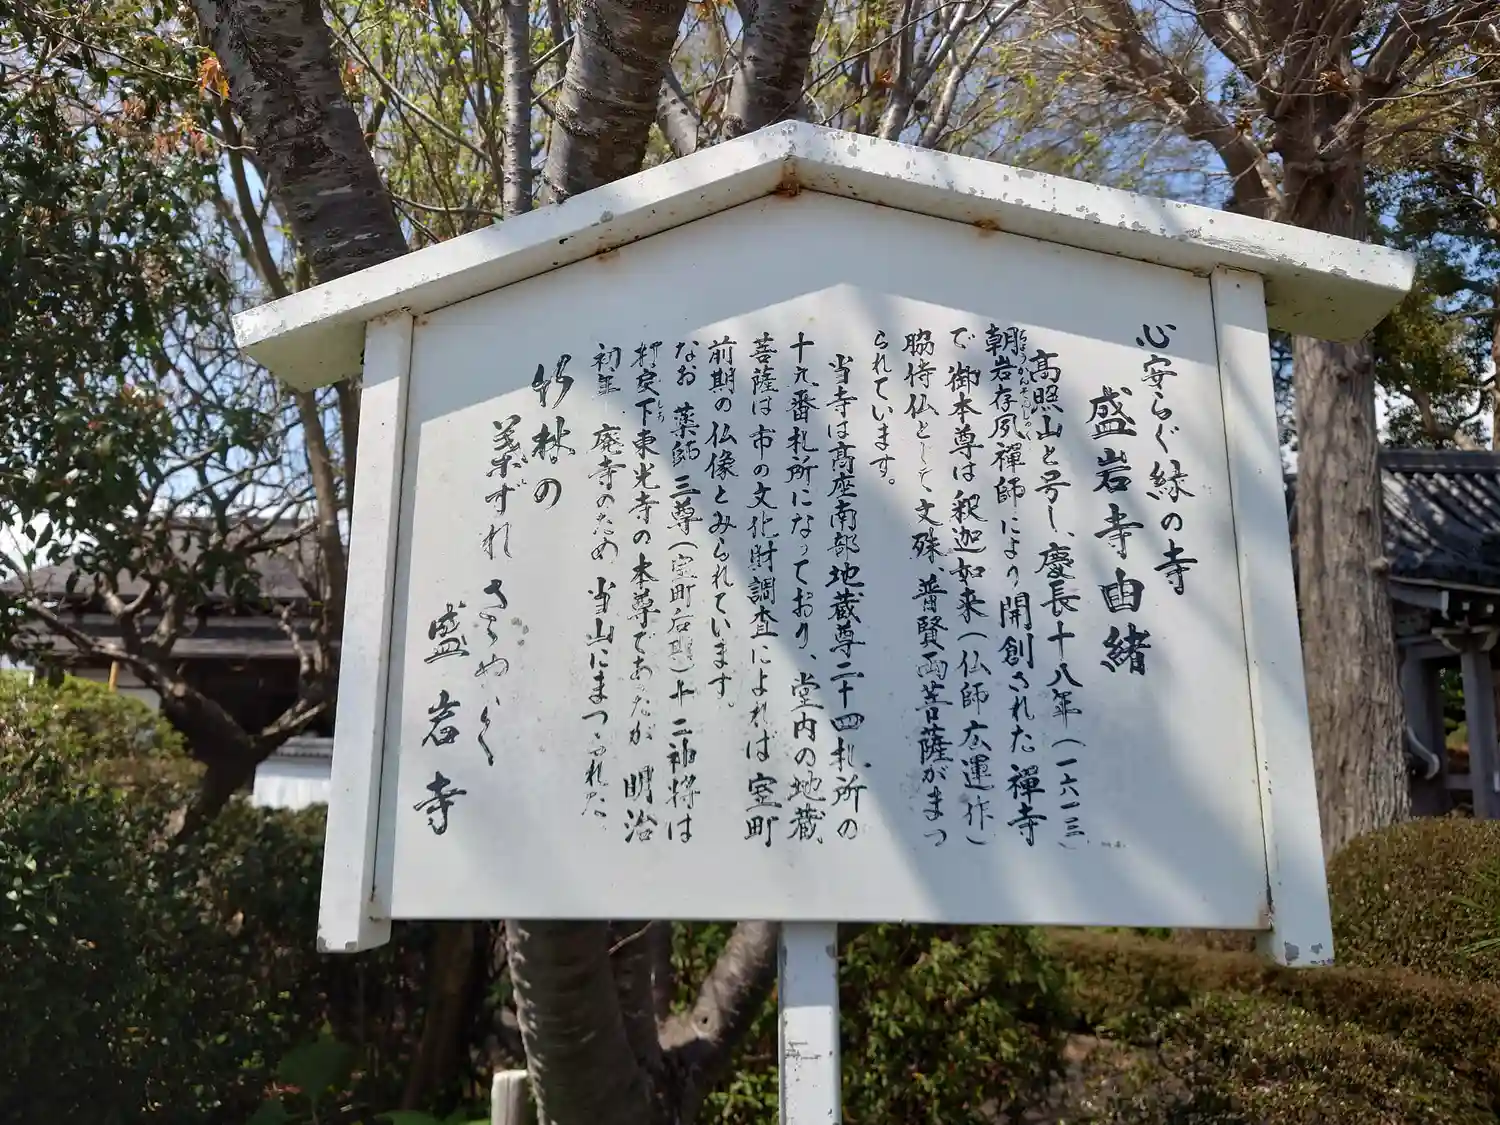 心安らぐ縁の寺
盛岩寺由緒
高照山と号し、慶長十八年(一六一三)
朝岩存夙禪師により開創された禪寺
ちょうがんそんしゅく
で御本尊は釈迦如来(仏師広運作)
脇侍仏として文殊、普賢両菩薩がまつ
られています。
当寺は高座南部地蔵尊二十四札所の
十九番札所になっており、堂内の地蔵
菩薩は市の文化財調査によれば室町
前期の仏像とみられています。
なお薬師三尊(室町后期)十二神将は
下東光寺の本尊であったが明治
初年廃寺のため当山にまつられた
竹林の
葉ずれさゝめく
盛岩寺